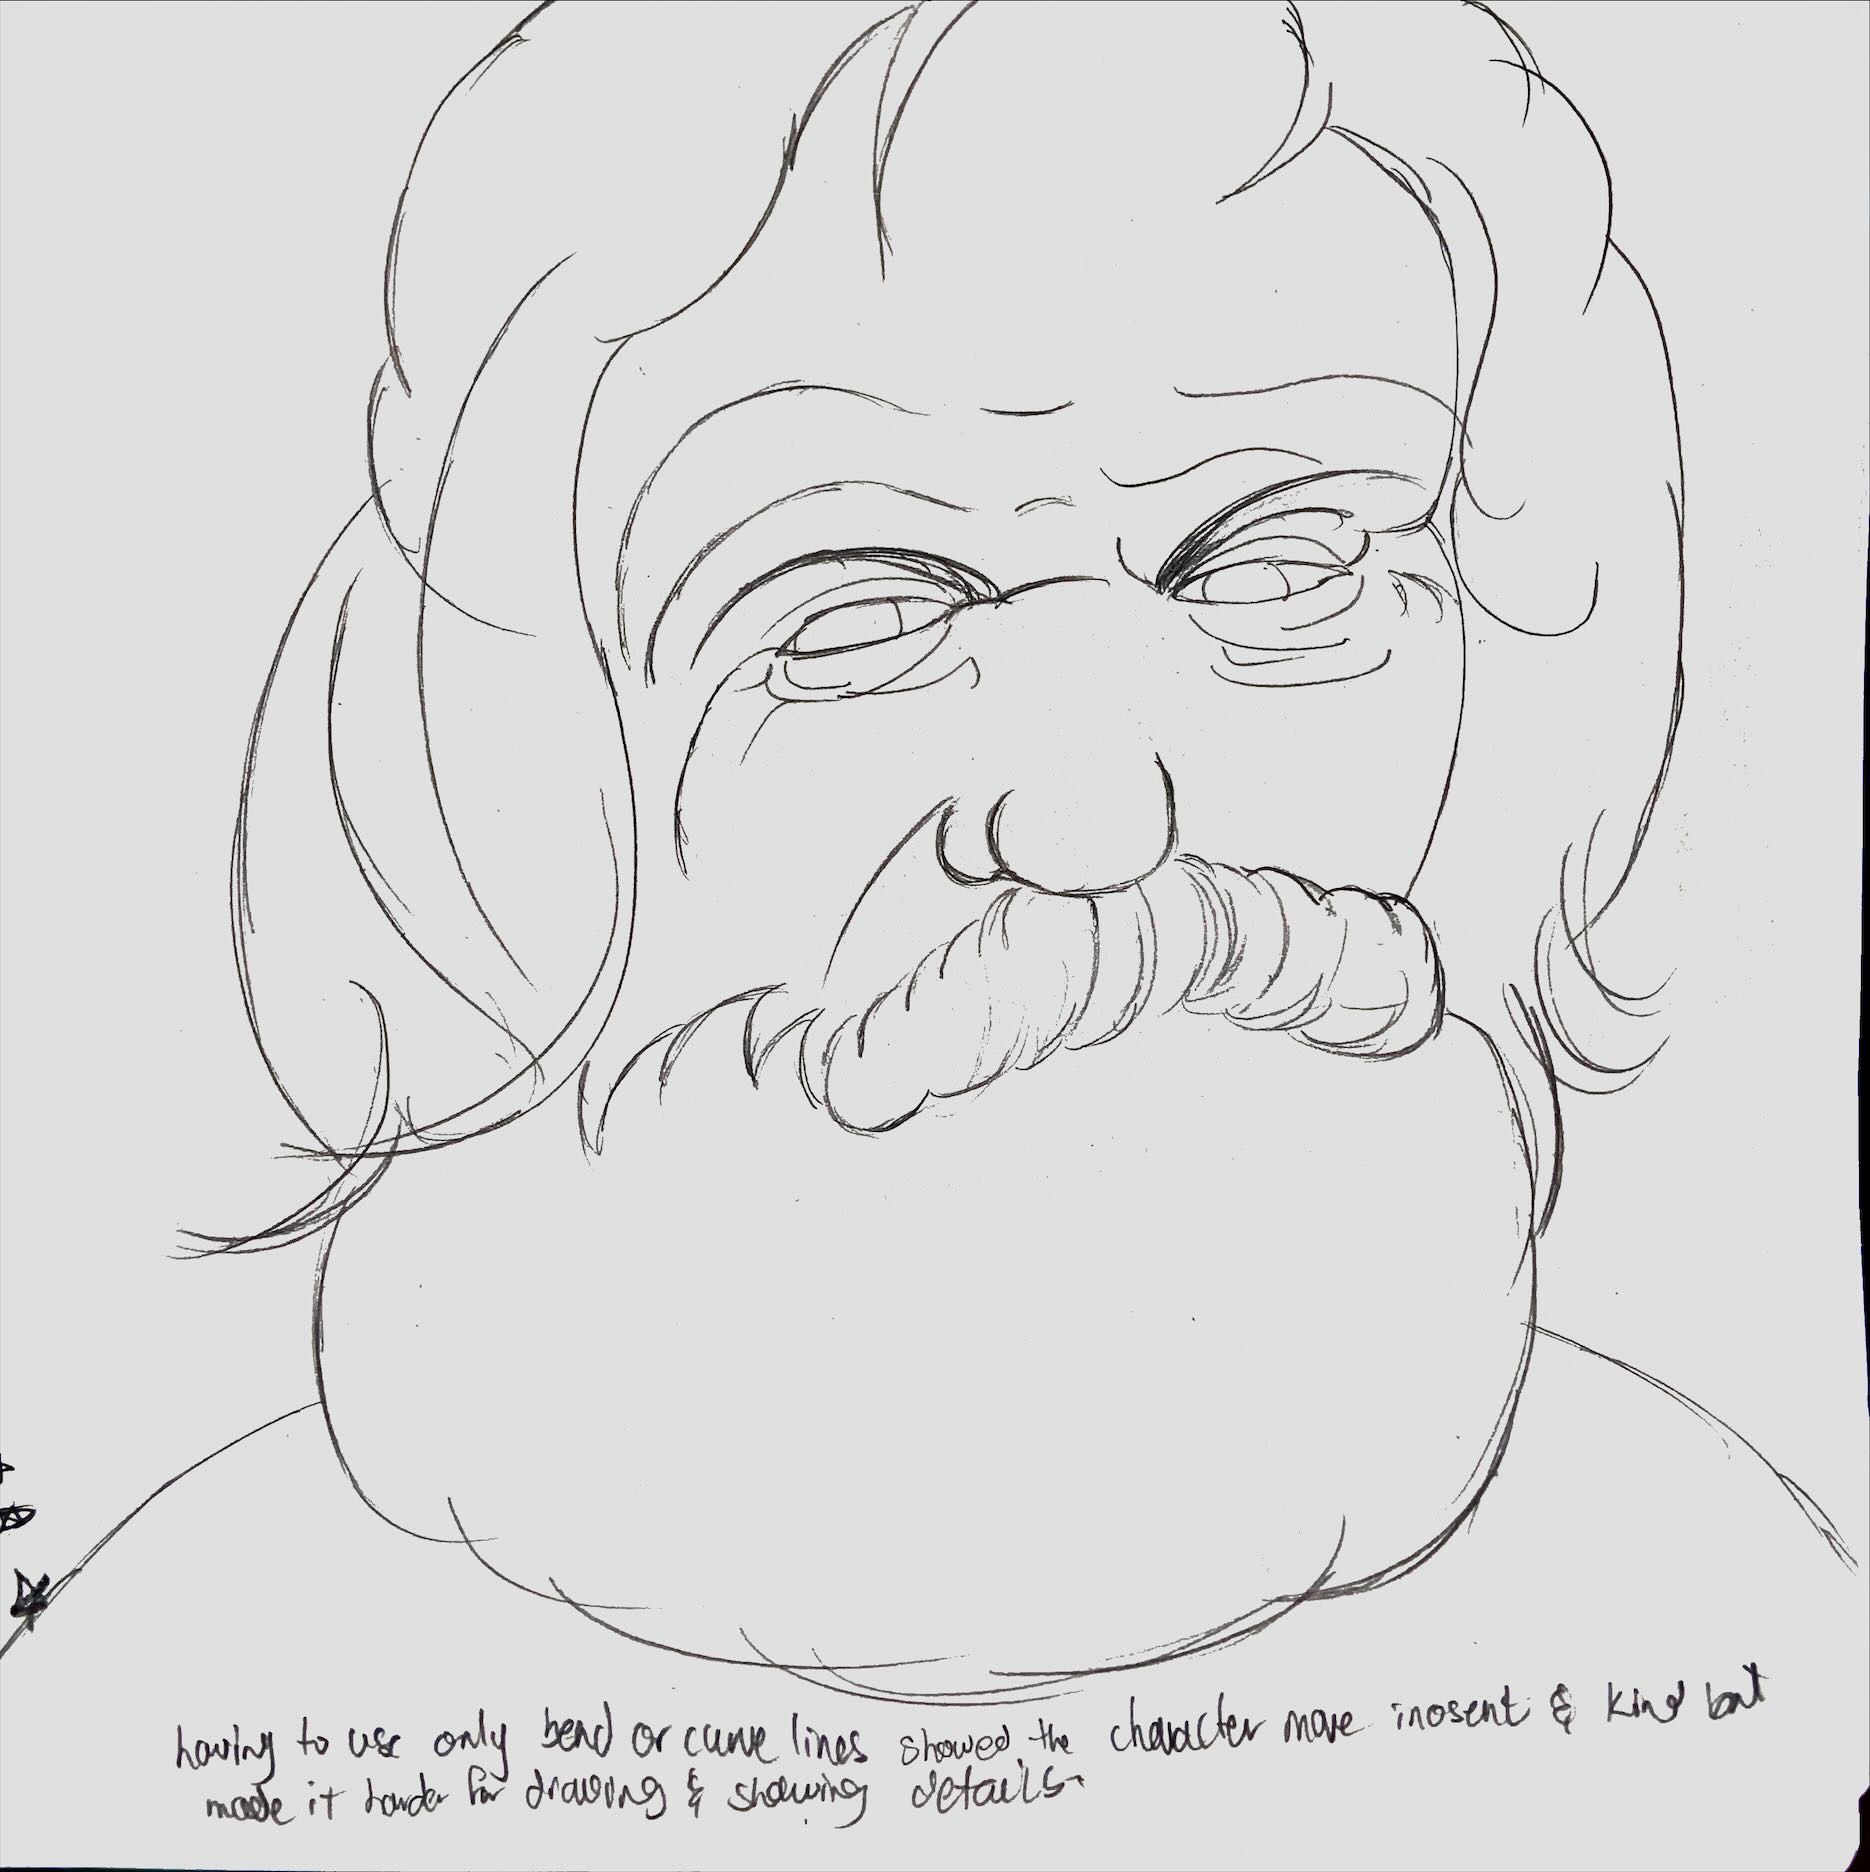 having to use only bend or curve lines showed the character more inosent & kind but
made it harder for drawing & showing details.